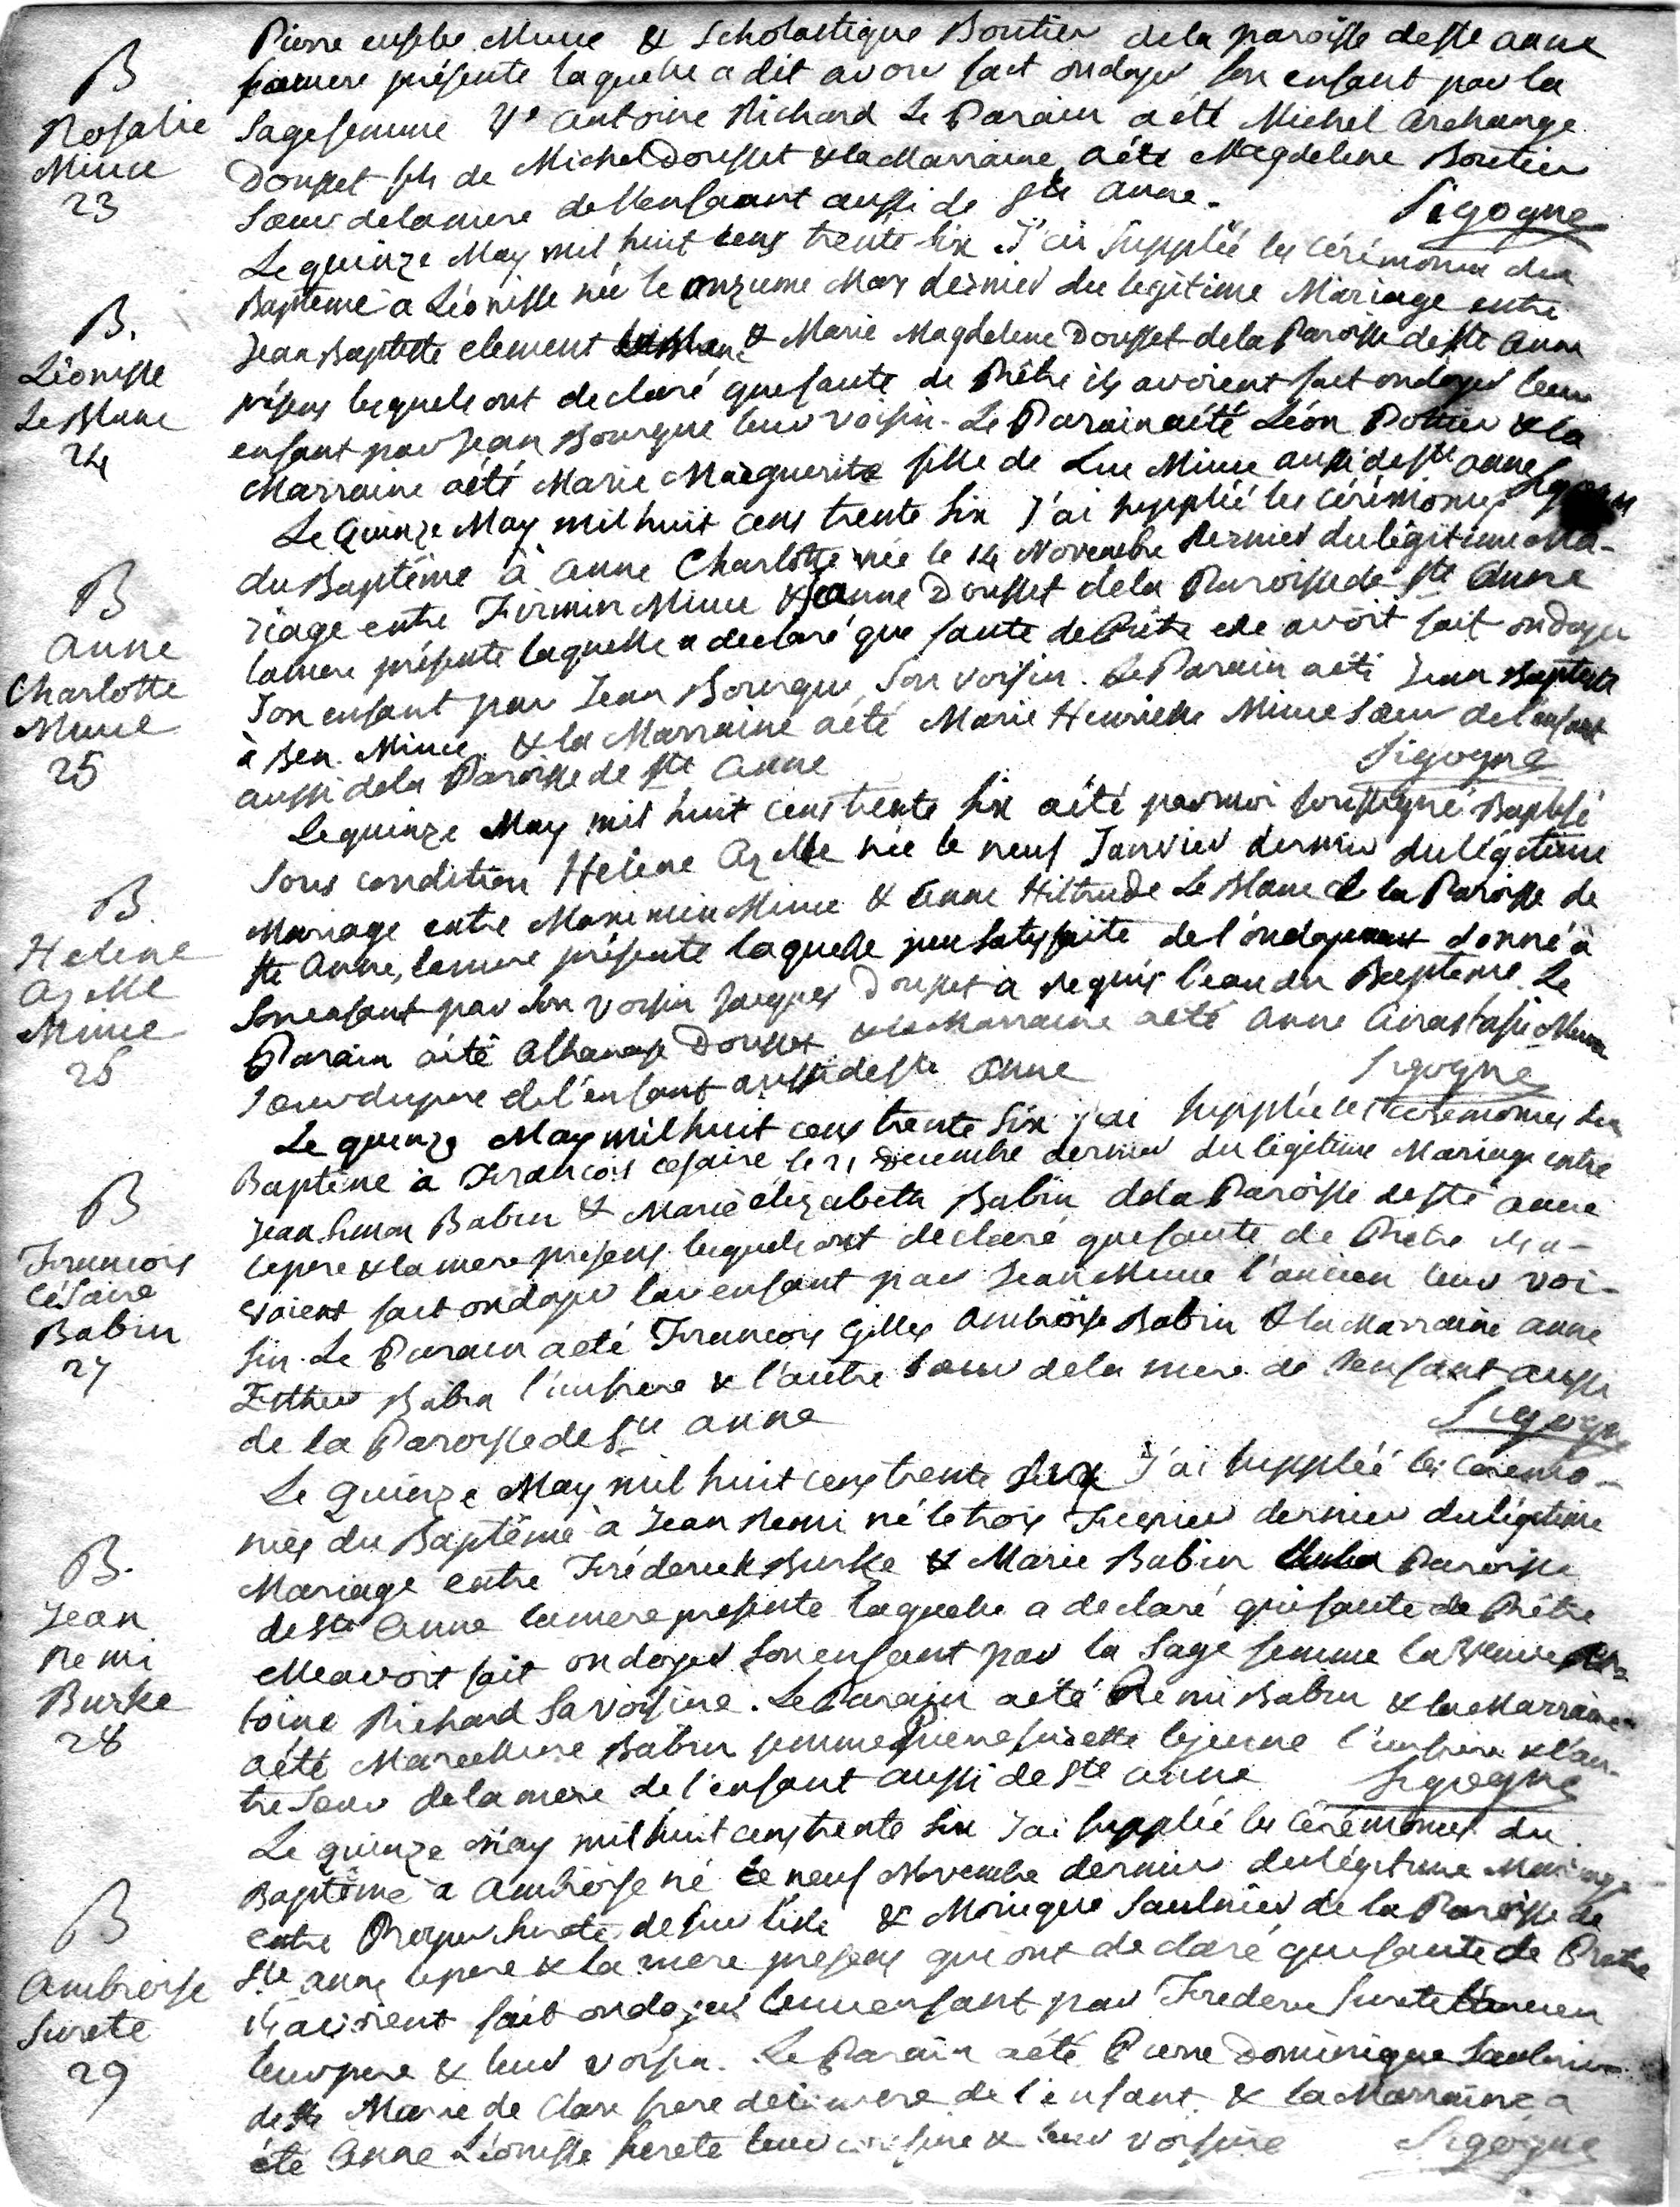 Pierre eusebe Miuce & Scholastique Boutier de la paroisse de ste anne
B
Rosalie
Miuce
23
la mere présente laquelle a dit avoir fait ondoyer son enfant par la
Sage femme Ve Antoine Richard Le Parain a été Michel Archange
Dousset fils de Michel Dousset & la Marraine a été Magdelene Boutier
Sœur de la mere de l'enfant aussi de Ste Anne. Sigogne
B.
Léonisse
Le Blanc
24
Le quinze May mil huit cens trente six J'ai Suppléé les cérémonies du
Baptême a Léonisse née le onzieme May dernier du legitime Mariage entre
Jean Baptiste element & Marie Magdelene Dousset de la Paroisse de Ste Anne
présens lesquels ont declaré que faute de Prêtre ils avoient fait ondoyer leur
enfant par Jean Bourque leur voisin. Le Parain a été Léon Pottier & la
Marraine a été Marie Marguerite fille de Luc Miuce aussi de Ste Anne Sigogne
B
Anne
Charlotte
Miuce
25
Le Quinze May mil huit cens trente six J'ai suppléé les cérémonies
du Baptême à Anne Charlotte née le 14 Novembre dernier du légitime Ma-
riage entre Firmin Miuce & Anne Dousset de la Paroisse de Ste Anne
la mere présente laquelle a declaré que faute de Prêtre elle avoit fait ondoyer
Son enfant par Jean Bourque, Son voisin. Le Parain a été Jean Baptiste
à Ben. Miuce & la Marraine a été Marie Henriette Miuce Sœur de l'enfant
aussi de la Paroisse de Ste Anne Sigogne
B.
Helene
Azelle
Miuce
26
Le quinze May mil huit cens trente six a été par moi soussigné Baptisé
Sous condition Helene Azelle née le neuf Janvier dernier du légitime
Mariage entre Maximin Miuce & Anne Hiltrude Le Blanc de la Paroisse de
Ste Anne, la mere présente laquelle peu satisfaite de l'ondoyement donné à
Son enfant par Son voisin Jacques Dousset a requis l'eau du Baptême. Le
Parain a été Athanase Dousset & la Marraine a été Anne Anastasie Miuce
Sœur du pere de l'enfant aussi de Ste Anne Sigogne
B
Francois
Césaire
Babin
27
Le quinze May mil huit cens trente six j'ai suppléé les ceremonies du
Baptême à Francois Césaire le 21 Decembre dernier du légitime Mariage entre
Jean Simon Babin & Marie Elizabeth Babin de la Paroisse de Ste Anne
le pere & la mere présens lesquels ont declaré que faute de Prêtre ils a-
voient fait ondoyer leur enfant par Jean Miuce l'ancien leur voi-
sin. Le Parain a été Francois Gilles Ambroise Babin & la Marraine Anne
Esther Babin l'un frere & l'autre Sœur de la mere de l'enfant aussi
de la Paroisse de Ste Anne Sigogne
B.
Jean
Remi
Burke
28
Le Quinze May mil huit cens trente six J'ai suppléé les cérémo-
nies du Baptême à Jean Remi né le trois Fevrier dernier du légitime
Mariage entre Fréderick Burke & Marie Babin Paroisse
de Ste Anne la mere présente laquelle a declaré que faute de Prêtre
elle avoit fait ondoyer Son enfant par la Sage femme la Veuve An-
toine Richard Sa voisine. Le Parain a été Remi Babin & la Marraine
a été Marcelline Babin femme Pierre Surette le jeune l'un frere & l'au-
tre Sœur de la mere de l'enfant aussi de Ste Anne Sigogne
B
Ambroise
Surete
29
Le quinze May mil huit cens trente six J'ai suppléé les cérémonies du
Baptême à Ambroise né le neuf Novembre dernier du légitime Mariage
entre Prosper Surete & Monique Saulnier de la Paroisse de
Ste Anne le pere & la mere présens qui ont declaré que faute de Prêtre
ils avoient fait ondoyer leur enfant par Frederic Surete l'ancien
leur pere & leur voisin. Le Parain a été Pierre Dominique Saulnier
de Ste Marie de Clare frere de la mere de l'enfant & la Marraine a
été Anne Léonisse Surete leur cousine & leur voisine Sigogne